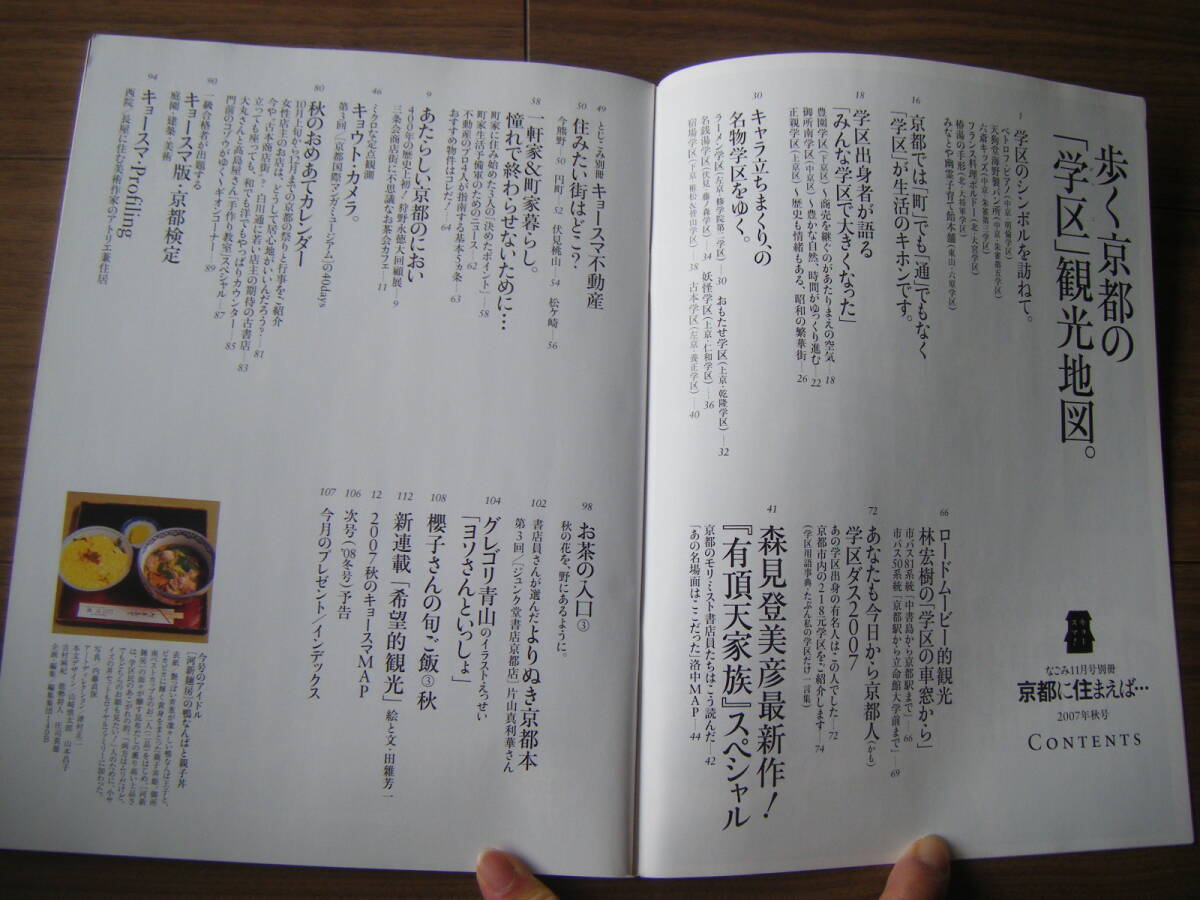 キョースマ
なごみ11月号別冊
京都に住まえば…
2007年秋号
CONTENTS
歩く京都の
「学区」観光地図。
1
学区のシンボルを訪ねて。
ペトロフ・ピアノ(中京・明倫学区)
天狗堂海野製パン所(中京・朱雀第五学区)
六斎キッズ(中京・朱雀第三学区)
フランス料理ボルドー(北・大宮学区)
椿湯の手形(北・大将軍学区)
みなとや幽霊子育て飴本舗(東山・六原学区)
16
京都では「町」でも「通」でもなく
「学区」が生活のキホンです。
18
学区出身者が語る
「みんな学区で大きくなった」
豊園学区(下京区)～商売を継ぐのがあたりまえの空気―18
御所南学区(中京区)～豊かな自然、時間がゆっくり進む―22
正親学区(上京区)～歴史も情緒もある、昭和の繁華街―26
30
キャラ立ちまくり、の
名物学区をゆく。
ラーメン学区(左京・修学院第二学区)―30 おもたせ学区(上京・乾隆学区)―32
名銭湯学区(伏見・藤ノ森学区)―34 妖怪学区(上京・仁和学区)―36
宿場学区(下京・稚松&皆山学区)―38 古本学区(左京・養正学区)―40
66
ロードムービー的観光
林宏樹の「学区の車窓から」
市バス81系統「中書島から京都駅まで」―66
市バス50系統「京都駅から立命館大学前まで」―69
72
あなたも今日から京都人(かも)
学区ダス2007
あの学区出身の有名人は、この人でした―72
京都市内の218元学区をご紹介します―74
(学区用語事典・たぶん私の学区だけ一言集)
41
森見登美彦最新作!
『有頂天家族』スペシャル
京都のモリミスト書店員たちはこう読んだ―42
「あの名場面はここだった」洛中MAP―44
49
とじこみ別冊 キョースマ不動産
50
住みたい街はどこ?
今熊野―50 円町―52 伏見桃山―54 松ヶ崎―56
58
一軒家&町家暮らし。
憧れで終わらせないために…
町家に住み始めた3人の「決めたポイント」―58
町家生活予備軍のためのニュース―62
不動産のプロ4人が指南する基本5ヵ条―63
おすすめ物件はコレだ!―64
9
あたらしい京都のにおい
400年の歴史上初・狩野永徳大回顧展―9
三条会商店街に不思議なお茶会カフェ―11
46
ミクロな定点観測
キョウト・カメラ。
第3回/「京都国際マンガミュージアム」の40days
80
秋のおめあてカレンダー
10月上旬から12月までの京都の祭りと行事をご紹介
女性店主のお店は、どうして居心地がいいんだろう?―81
今や「古本商店街」? 白川通に若い店主の期待の古書店―83
立っても座っても、和でも洋でもやっぱりカウンター―85
大丸さんと高島屋さん「手作り教室」スペシャル―87
門前のコゾウがゆく、ギオンコーナー!―89
90
一級合格者が出題する
キョースマ版・京都検定
庭園・建築・美術
94
キョースマ・Profiling
西院「長屋」に住む美術作家のアトリエ兼住居
98
お茶の入口③
秋の花を、野にあるように。
102
書店員さんが選んだ よりぬき京都本
第3回/「ジュンク堂書店京都店」片山真利華さん
104
グレゴリ青山のイラストえっせい
「ヨソさんといっしょ」
108
櫻子さんの旬ご飯③秋
112
新連載「希望的観光」 絵と文・田雜芳一
12
2007秋のキョースマMAP
106
次号('08冬号)予告
107
今月のプレゼント/インデックス
今号のアイドル
「河新麺房」の鴨なんばと親子丼